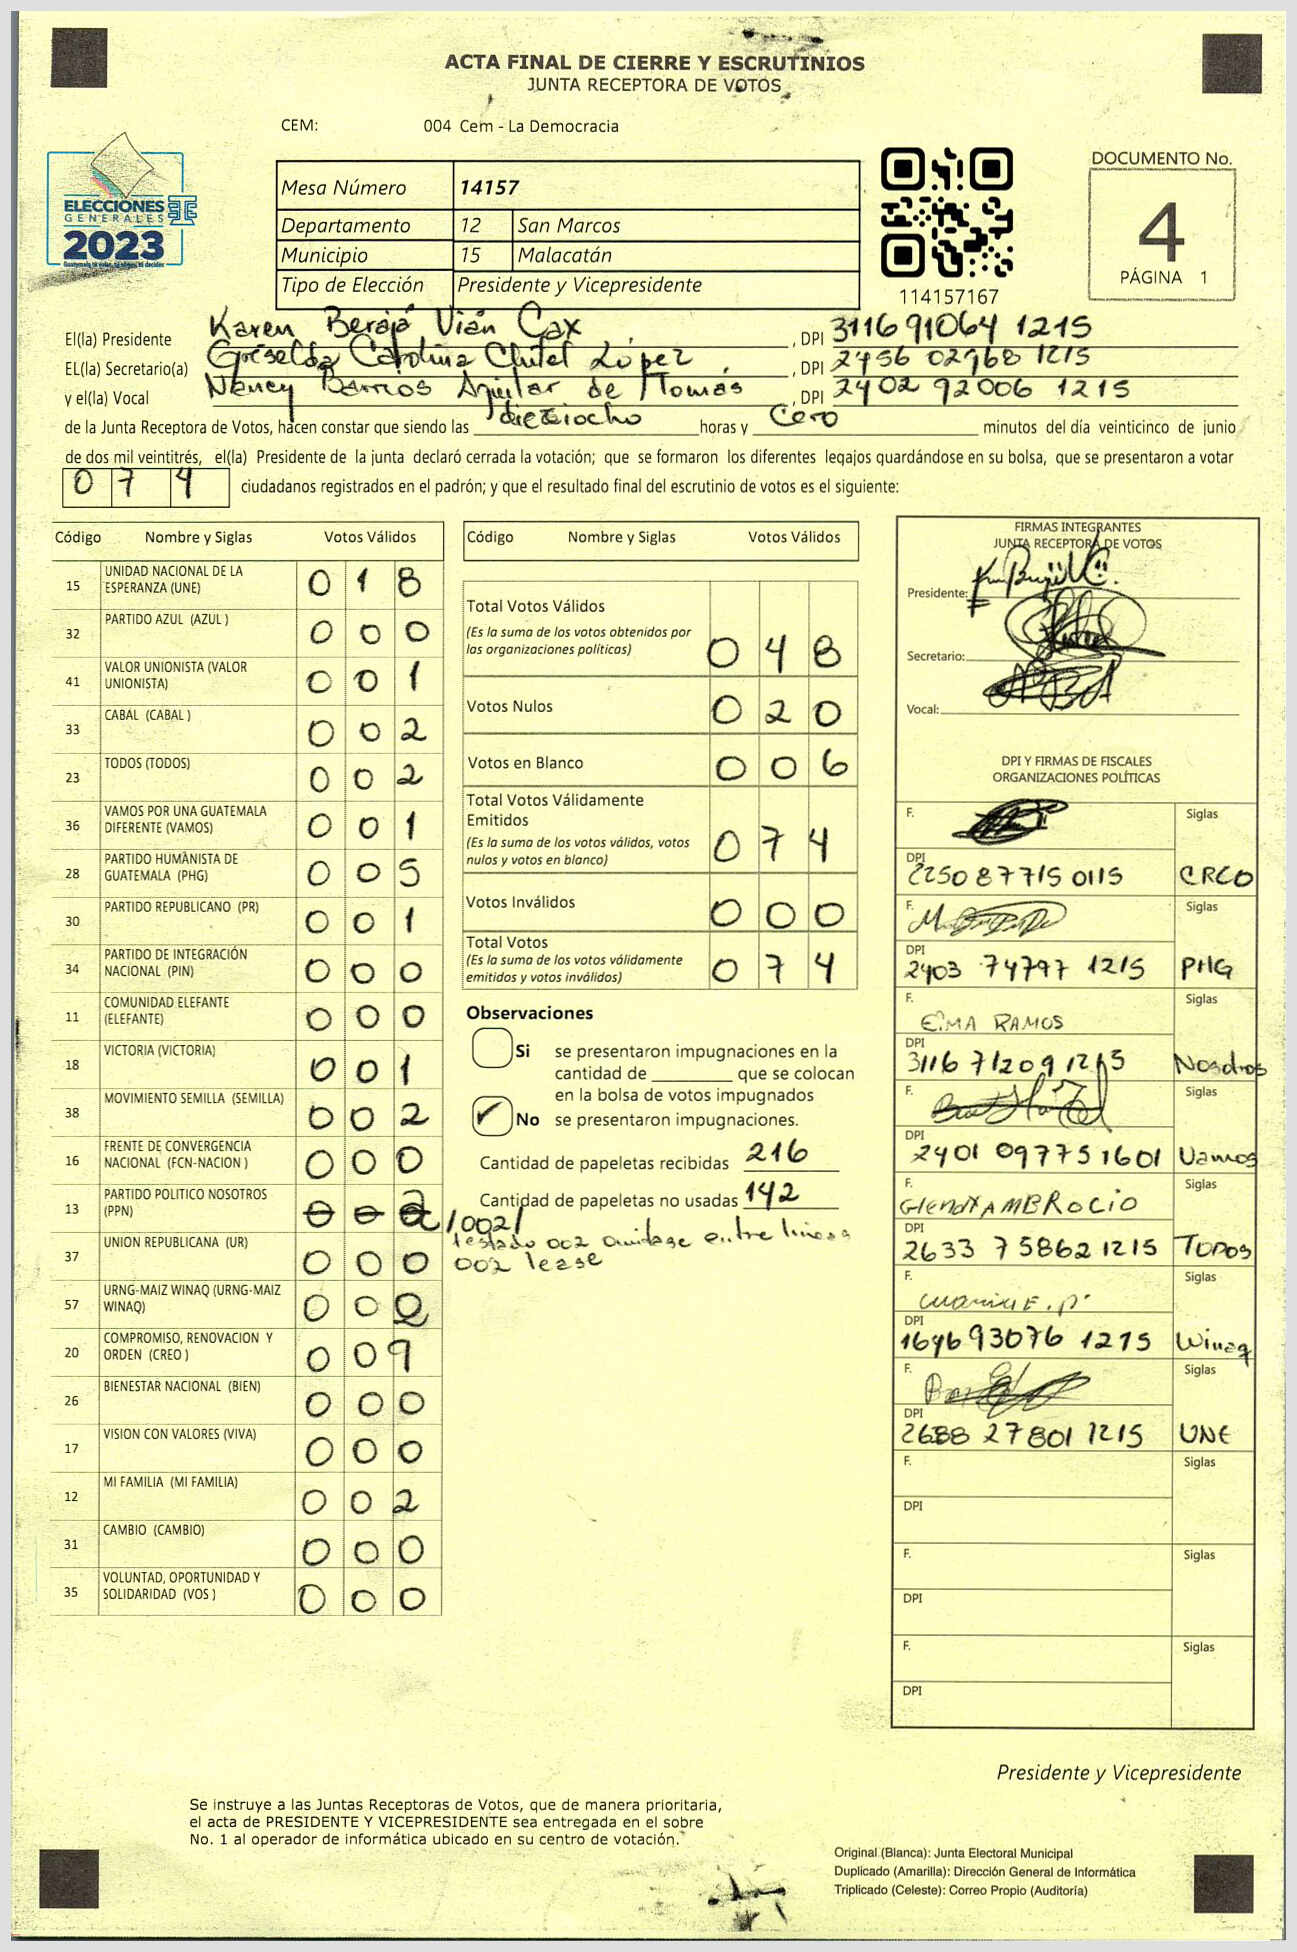 ACTA FINAL DE CIERRE Y ESCRUTINIOS
JUNTA RECEPTORA DE VOTOS
CEM: 004 Cem - La Democracia
ELECCIONES
GENERALES
2023
Mesa Número 14157
Departamento 12 San Marcos
Municipio 15 Malacatán
Tipo de Elección Presidente y Vicepresidente
114157167
DOCUMENTO No.
4
PÁGINA 1
El(la) Presidente Karen Vián Cax, DPI 3116 91064 1215
EL(la) Secretario(a) Griselda Carolina Chitel López, DPI 2456 02968 1215
y el(la) Vocal Nancy Barrios Aguilar de Tomás, DPI 2402 92006 1215
de la Junta Receptora de Votos, hacen constar que siendo las dieziocho horas y Cero minutos del día veinticinco de junio
de dos mil veintitrés, el(la) Presidente de la junta declaró cerrada la votación; que se formaron los diferentes legajos quardándose en su bolsa, que se presentaron a votar
074 ciudadanos registrados en el padrón; y que el resultado final del escrutinio de votos es el siguiente:
Código Nombre y Siglas Votos Válidos
15 UNIDAD NACIONAL DE LA ESPERANZA (UNE) 018
32 PARTIDO AZUL (AZUL ) 000
41 VALOR UNIONISTA (VALOR UNIONISTA) 001
33 CABAL (CABAL ) 002
23 TODOS (TODOS) 002
36 VAMOS POR UNA GUATEMALA DIFERENTE (VAMOS) 001
28 PARTIDO HUMANISTA DE GUATEMALA (PHG) 005
30 PARTIDO REPUBLICANO (PR) 001
34 PARTIDO DE INTEGRACIÓN NACIONAL (PIN) 000
11 COMUNIDAD ELEFANTE (ELEFANTE) 000
18 VICTORIA (VICTORIA) 001
38 MOVIMIENTO SEMILLA (SEMILLA) 002
16 FRENTE DE CONVERGENCIA NACIONAL (FCN-NACION ) 000
13 PARTIDO POLITICO NOSOTROS (PPN) 002 /002/
37 UNION REPUBLICANA (UR) 000
57 URNG-MAIZ WINAQ (URNG-MAIZ WINAQ) 000
20 COMPROMISO, RENOVACION Y ORDEN (CREO ) 009
26 BIENESTAR NACIONAL (BIEN) 000
17 VISION CON VALORES (VIVA) 000
12 MI FAMILIA (MI FAMILIA) 002
31 CAMBIO (CAMBIO) 000
35 VOLUNTAD, OPORTUNIDAD Y SOLIDARIDAD (VOS ) 000
Código Nombre y Siglas Votos Válidos
Total Votos Válidos
(Es la suma de los votos obtenidos por las organizaciones políticas) 048
Votos Nulos 020
Votos en Blanco 006
Total Votos Válidamente Emitidos
(Es la suma de los votos válidos, votos nulos y votos en blanco) 074
Votos Inválidos 000
Total Votos
(Es la suma de los votos válidamente emitidos y votos inválidos) 074
Observaciones
Si se presentaron impugnaciones en la
cantidad de ________ que se colocan
en la bolsa de votos impugnados
No se presentaron impugnaciones.
Cantidad de papeletas recibidas 216
Cantidad de papeletas no usadas 142
testado 002 omitase entre lineas
002 lease
FIRMAS INTEGRANTES
JUNTA RECEPTORA DE VOTOS
Presidente:
Secretario:
Vocal:
DPI Y FIRMAS DE FISCALES
ORGANIZACIONES POLÍTICAS
F. Siglas
DPI 2250 87715 0115 CREO
F. Siglas
DPI 2403 74797 1215 PHG
F. RAMOS Siglas
DPI 3116 71209 1215 Nosotros
F. Siglas
DPI 2401 09775 1601 Vamos
F. Glenda AMBROCIO Siglas
DPI 2633 75862 1215 TODOS
F. Siglas
DPI 1646 93076 1215 Winaq
F. Siglas
DPI 2688 27801 1215 UNE
F. Siglas
DPI
F. Siglas
DPI
F. Siglas
DPI
Presidente y Vicepresidente
Se instruye a las Juntas Receptoras de Votos, que de manera prioritaria,
el acta de PRESIDENTE Y VICEPRESIDENTE sea entregada en el sobre
No. 1 al operador de informática ubicado en su centro de votación.
Original (Blanca): Junta Electoral Municipal
Duplicado (Amarilla): Dirección General de Informática
Triplicado (Celeste): Correo Propio (Auditoría)